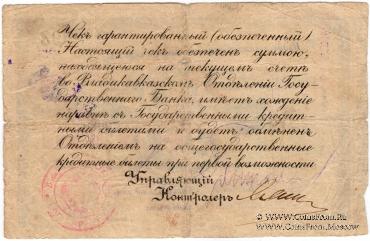 Чекъ гарантированный (обезпеченный)
Настоящій чекъ обезпеченъ суммою,
находящеюся на текущемъ счетѣ
во Владикавказскомъ Отдѣленіи Госу-
дарственнаго Банка, имѣетъ хожденіе
наравнѣ съ Государственными кредит-
ными билетами и будетъ обмѣненъ
Отдѣленіемъ на общегосударственные
кредитные билеты при первой возможности
Управляющій
Контролеръ
© www.CoinsFrom.Ru
Moscow